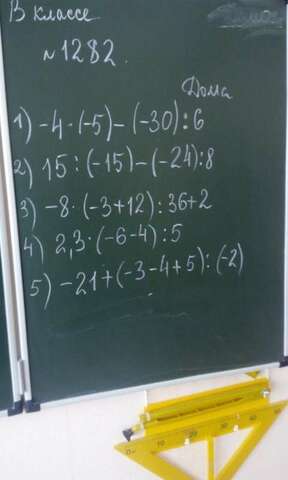 В классе
№1282.
Дома
1) -4·(-5)-(-30):6
2) 15:(-15)-(-24):8
3) -8·(-3+12):36+2
4) 2,3·(-6-4):5
5) -21+(-3-4+5):(-2)